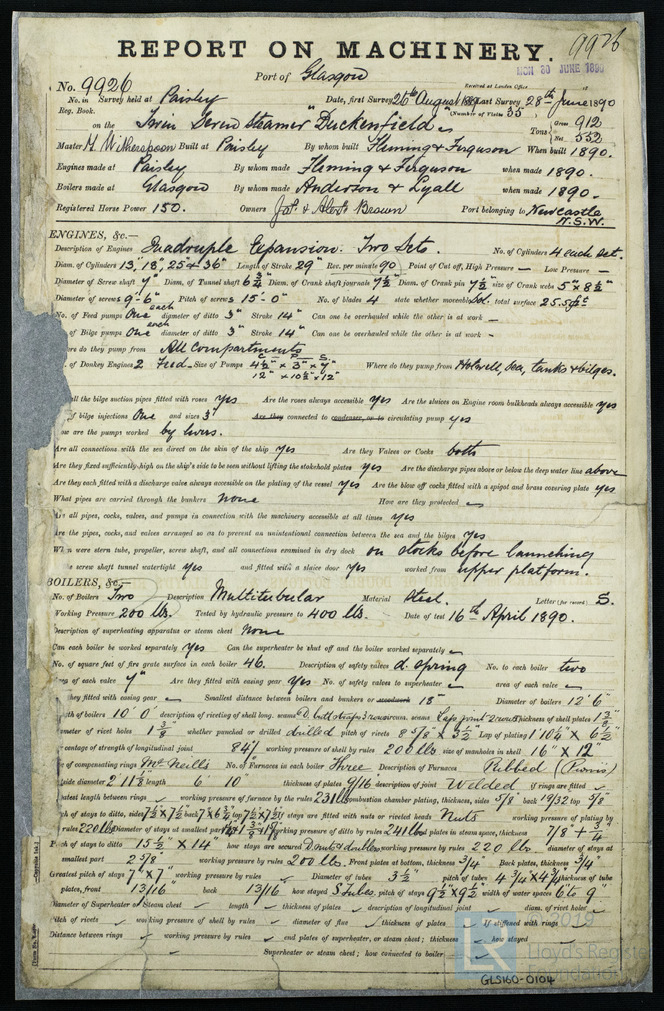 REPORT ON MACHINERY. 9926
Port of Glasgow
Received at London Office
MON 30 JUNE 1890
No. 9926
No. in Survey held at Paisley Date, first Survey 26th August 1889 Last Survey 28th June 1890
Reg. Book. (Number of Visits 35)
on the Twin Screw Steamer "Duckenfield" Tons Gross 912 Net 552
Master H. Witherspoon Built at Paisley By whom built Fleming & Ferguson When built 1890.
Engines made at Paisley By whom made Fleming & Ferguson when made 1890.
Boilers made at Glasgow By whom made Anderson & Lyall when made 1890.
Registered Horse Power 150. Owners Jos. & Alexr. Brown Port belonging to Newcastle N.S.W.
ENGINES, &c.—
Description of Engines Quadruple Expansion. Two Sets. No. of Cylinders 4 each set.
Diam. of Cylinders 13", 18", 25" & 36" Length of Stroke 29" Rev. per minute 90 Point of Cut off, High Pressure — Low Pressure —
Diameter of Screw shaft 7" Diam. of Tunnel shaft 6¾ Diam. of Crank shaft journals 7½" Diam. of Crank pin 7½" size of Crank webs 5" x 8½"
Diameter of screws 9-6" Pitch of screws 15-0" No. of blades 4 state whether moveable Sol. total surface 25.5
No. of Feed pumps One each diameter of ditto 3" Stroke 14" Can one be overhauled while the other is at work —
No. of Bilge pumps One each diameter of ditto 3" Stroke 14" Can one be overhauled while the other is at work —
Where do they pump from All Compartments
No. of Donkey Engines 2 Feed Size of Pumps 4½" x 3" x 7" 12" x 10½" x 12" Where do they pump from Hotwell, Sea, tanks & bilges.
all the bilge suction pipes fitted with roses yes Are the roses always accessible yes Are the sluices on Engine room bulkheads always accessible yes
of bilge injections One and sizes 3" Are they connected to condenser, or to circulating pump yes
How are the pumps worked by levers.
Are all connections with the sea direct on the skin of the ship yes Are they Valves or Cocks both
Are they fixed sufficiently high on the ship's side to be seen without lifting the stokehold plates yes Are the discharge pipes above or below the deep water line above
Are they each fitted with a discharge valve always accessible on the plating of the vessel yes Are the blow off cocks fitted with a spigot and brass covering plate yes
What pipes are carried through the bunkers none How are they protected —
Are all pipes, cocks, valves, and pumps in connection with the machinery accessible at all times yes
Are the pipes, cocks, and valves arranged so as to prevent an unintentional connection between the sea and the bilges yes
When were stern tube, propeller, screw shaft, and all connections examined in dry dock on stocks before launching
the screw shaft tunnel watertight yes and fitted with a sluice door yes worked from upper platform.
BOILERS, &c.—
No. of Boilers Two Description Multitubular Material Steel. Letter (for record) S.
Working Pressure 200 lbs. Tested by hydraulic pressure to 400 lbs. Date of test 16th April 1890.
Description of superheating apparatus or steam chest None
Can each boiler be worked separately yes Can the superheater be shut off and the boiler worked separately —
No. of square feet of fire grate surface in each boiler 46. Description of safety valves d. spring No. to each boiler two
Area of each valve 4" Are they fitted with easing gear yes No. of safety valves to superheater — area of each valve —
they fitted with easing gear — Smallest distance between boilers and bunkers or woodwork 15" Diameter of boilers 12' 6"
Length of boilers 10' 0" description of riveting of shell long. seams D. butt straps 3 rows circum. seams Lap joint 2 rows Thickness of shell plates 1
Diameter of rivet holes 1 3/8" whether punched or drilled drilled pitch of rivets 8 5/8" x 3½" Lap of plating x 6½"
percentage of strength of longitudinal joint 84 working pressure of shell by rules 200 lbs size of manholes in shell 16" x 12"
of compensating rings McNeills No. of Furnaces in each boiler Three Description of Furnaces Ribbed (Purves)
outside diameter 2' 11 length 6' 10" thickness of plates 9/16" description of joint Welded if rings are fitted —
greatest length between rings — working pressure of furnace by the rules 231 lbs combustion chamber plating, thickness, sides 5/8 back 19/32 top 5/8"
pitch of stays to ditto, sides 7½" x 7½" back 7" x 6¾" top 7½" x 7½" If stays are fitted with nuts or riveted heads Nuts working pressure of plating by
rules 220 lbs Diameter of stays at smallest part working pressure of ditto by rules 241 lbs end plates in steam space, thickness 7/8" + 3/4"
Pitch of stays to ditto 15½" x 14" how stays are secured D. nuts & doubles working pressure by rules 220 lbs. diameter of stays at
smallest part 2 5/8" working pressure by rules 200 lbs. Front plates at bottom, thickness 3/4" Back plates, thickness 3/4"
Greatest pitch of stays 7" x 7" working pressure by rules — Diameter of tubes 3½" pitch of tubes 4¾" x 4¾" thickness of tube
plates, front 13/16" back 13/16" how stayed S. tubes. pitch of stays 9½" x 9½" width of water spaces 6" to 9"
Diameter of Superheater or Steam chest — length — thickness of plates — description of longitudinal joint — diam. of rivet holes —
Pitch of rivets — working pressure of shell by rules — diameter of flue — thickness of plates — If stiffened with rings —
Distance between rings — working pressure by rules — end plates of superheater, or steam chest; thickness — how stayed —
Superheater or steam chest; how connected to boiler —
LR
© 2019
Lloyd's Register
Foundation
GLS160-0104